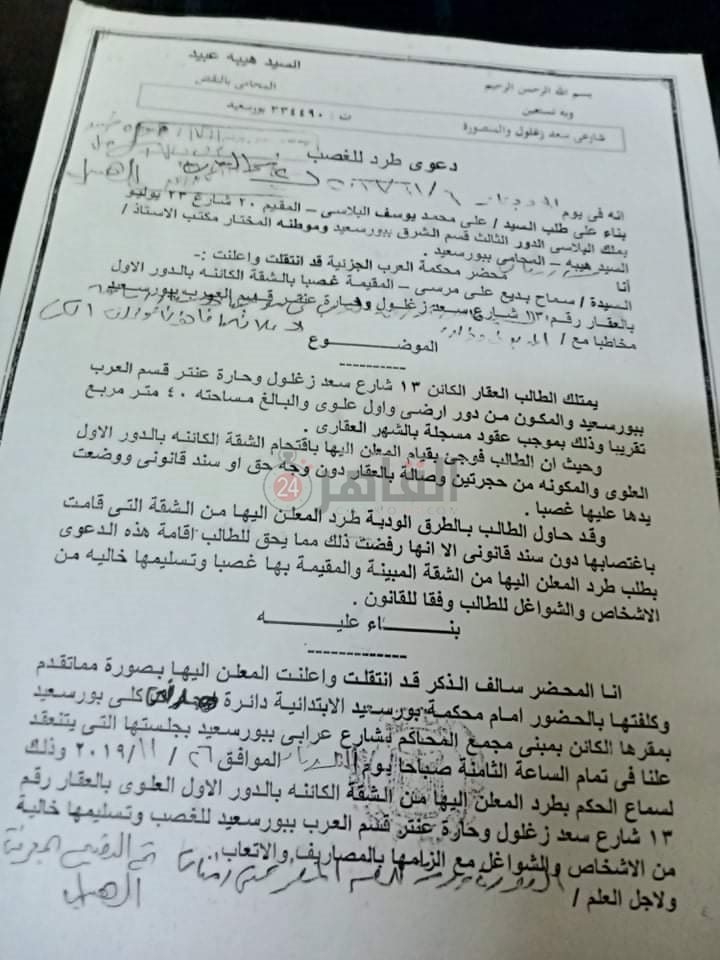 السيد هيبه عبيد
المحامى بالنقض
بسم الله الرحمن الرحيم
وبه نستعين
ت : ٣٣٤٤٩٠ بورسعيد
شارعى سعد زغلول والمنصورة
دعوى طرد للغصب
انه فى يوم
بناء على طلب السيد / على محمد يوسف البلاسى – المقيم ٢٠ شارع ٢٣ يوليو
بملك البلاسى الدور الثالث قسم الشرق ببورسعيد وموطنه المختار مكتب الاستاذ /
السيد هيبه – المحامى ببورسعيد .
أنا محضر محكمة العرب الجزئية قد انتقلت واعلنت :-
السيدة / سماح بديع على مرسى – المقيمة غصبا بالشقة الكائنه بالدور الاول
بالعقار رقم ١٣ شارع سعد زغلول وحارة عنتر قسم العرب ببورسعيد
مخاطبا مع /
الموضـــــــوع
----------
يمتلك الطالب العقار الكائن ١٣ شارع سعد زغلول وحارة عنتر قسم العرب
ببورسعيد والمكون من دور ارضى واول علوى والبالغ مساحته ٤٠ متر مربع
تقريبا وذلك بموجب عقود مسجلة بالشهر العقارى .
وحيث ان الطالب فوجئ بقيام المعلن اليها باقتحام الشقة الكائنه بالدور الاول
العلوى والمكونه من حجرتين وصالة بالعقار دون وجه حق او سند قانونى ووضعت
يدها عليها غصبا .
القاهرة 24
وقد حاول الطالب بالطرق الودية طرد المعلن اليها من الشقة التى قامت
باغتصابها دون سند قانونى الا انها رفضت ذلك مما يحق للطالب اقامة هذه الدعوى
بطلب طرد المعلن اليها من الشقة المبينة والمقيمة بها غصبا وتسليمها خاليه من
الاشخاص والشواغل للطالب وفقا للقانون .
بنـــــــاء عليـــــــه
----------
انا المحضر سالف الذكر قد انتقلت واعلنت المعلن اليها بصورة مماتقدم
وكلفتها بالحضور امام محكمة بورسعيد الابتدائية دائرة كلى بورسعيد
بمقرها الكائن بمبنى مجمع المحاكم بشارع عرابى ببورسعيد بجلستها التى يتنعقد
علنا فى تمام الساعة الثامنة صباحا يوم الموافق ٢٦ / ١١ / ٢٠١٩ وذلك
لسماع الحكم بطرد المعلن اليها من الشقة الكائنه بالدور الاول العلوى بالعقار رقم
١٣ شارع سعد زغلول وحارة عنتر قسم العرب ببورسعيد للغصب وتسليمها خالية
من الاشخاص والشواغل مع الزامها بالمصاريف والاتعاب.
ولاجل العلم /